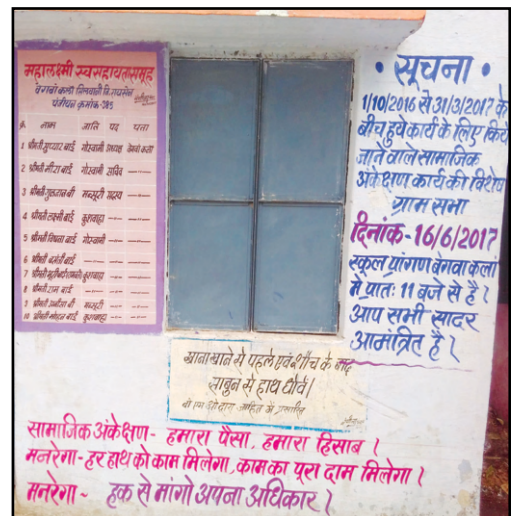 महालक्ष्मी स्वसहायता समूह
बेगवा कला सिलवानी जि. रायसेन
पंजीयन क्रमांक-385
क्र. नाम जाति पद पता
1 श्रीमती सुप्यार बाई गोस्वामी अध्यक्ष बेगवा कला
2 श्रीमती मीरा बाई गोस्वामी सचिव —〃—
3 श्रीमती गुलराज बी मन्सूरी सदस्य —〃—
4 श्रीमती लक्ष्मी बाई कुशवाहा —〃— —〃—
5 श्रीमती विपता बाई गोस्वामी —〃— —〃—
6 श्रीमती बसंती बाई —〃— —〃— —〃—
7 श्रीमती कुशवाहा —〃— —〃—
8 श्रीमती राम बाई —〃— —〃— —〃—
9 श्रीमती अनीसा बी मन्सूरी —〃— —〃—
10 श्रीमती मोहन बाई कुशवाहा —〃— —〃—
• सूचना •
1/10/2016 से 31/3/2017 के
बीच हुये कार्य के लिए किये
जाने वाले सामाजिक
अंकेक्षण कार्य की विशेष
ग्राम सभा
दिनांक-16/6/2017
स्कूल प्रांगण बेगवा कला
मे प्रातः 11 बजे से है।
आप सभी सादर
आमंत्रित है।
खाना खाने से पहले एवं शौच के बाद
साबुन से हाथ धोवें।
सामाजिक अंकेक्षण- हमारा पैसा, हमारा हिसाब।
मनरेगा- हर हाथ को काम मिलेगा, काम का पूरा दाम मिलेगा।
मनरेगा- हक से मांगो अपना अधिकार।